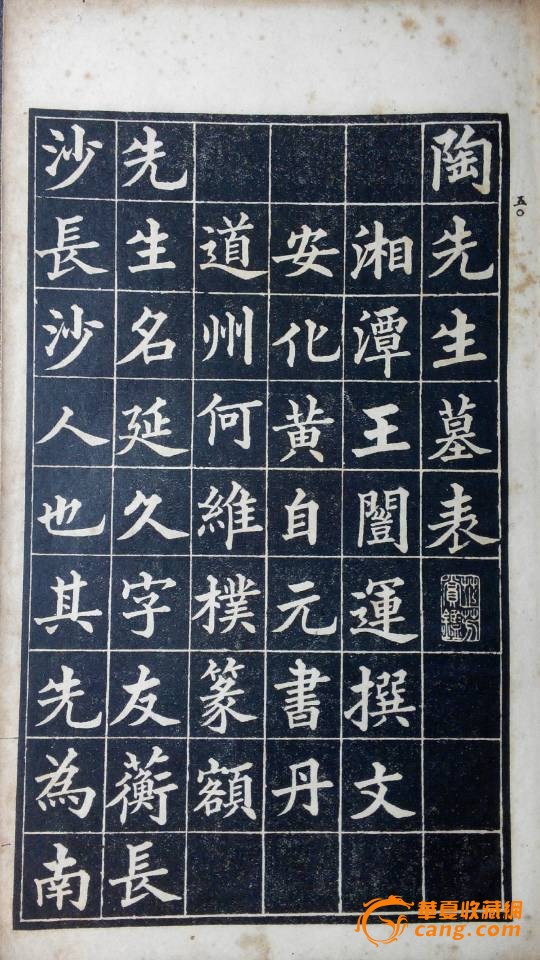 陶先生墓表
湘潭王闓運撰文
安化黃自元書丹
道州何維樸篆額
先生名延久字友蘅長
沙長沙人也其先為南
五〇
華夏收藏網
cang.com